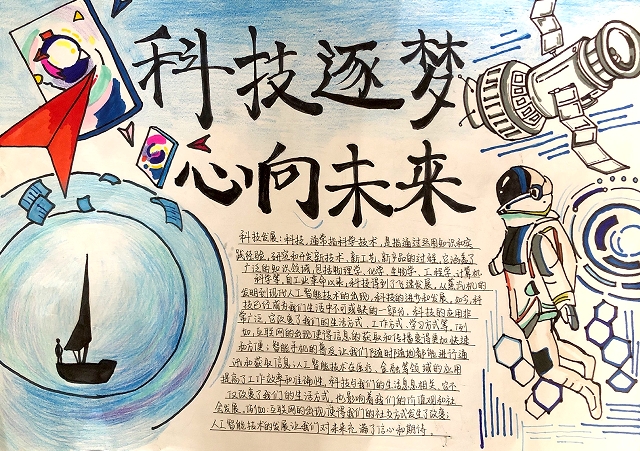 科技逐梦
心向未来
科技发展：科技，通常指科学技术，是指通过运用知识和实
践经验，研究和开发新技术、新工艺、新产品的过程，它涵盖了
广泛的知识领域，包括物理学、化学、生物学、工程学、计算机
科学等，自工业革命以来，科技得到了飞速发展，从蒸汽机的
发明到现代人工智能技术的出现，科技的进步和发展，如今，科
技已经成为我们生活中不可或缺的一部分，科技的应用非
常广泛，它改变了我们的生活方式、工作方式、学习方式等，例
如，互联网的出现使得信息的获取和传播变得更加快速
和方便；智能手机的普及让我们随时随地都能进行通
讯和获取信息；人工智能技术在医疗、金融等领域的应用
提高了工作效率和准确性，科技与我们的生活息息相关，它不
仅改变了我们的生活方式，也影响着我们的价值观和社
会发展，例如：互联网的出现使得我们的社交方式发生了改变；
人工智能技术的发展让我们对未来充满了信心和期待。